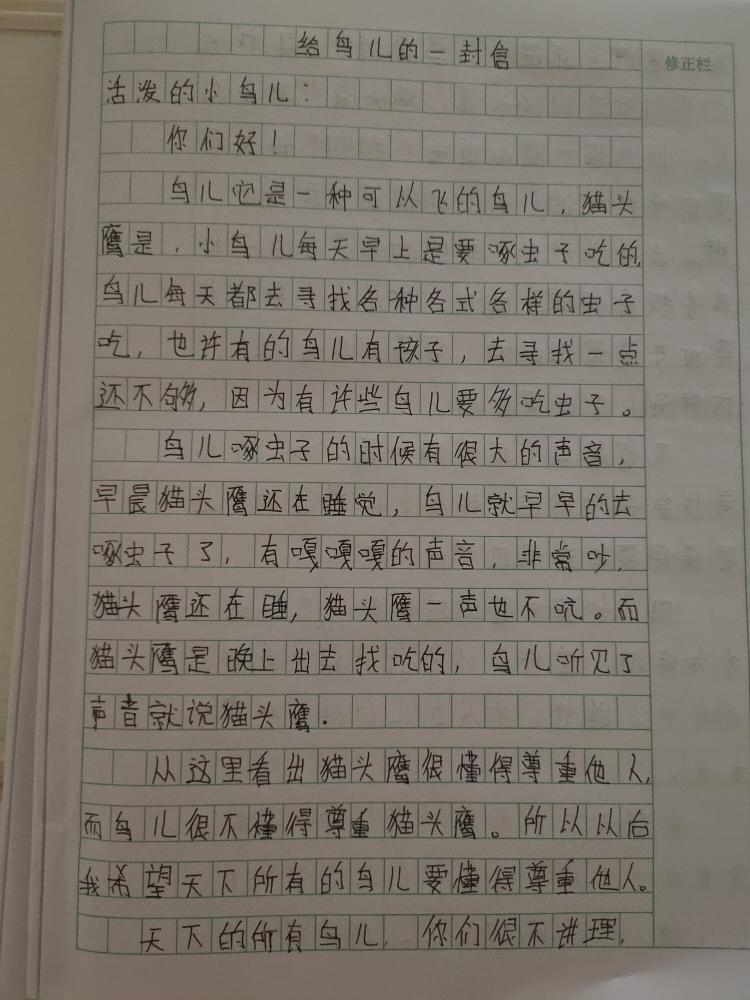 给鸟儿的一封信
修正栏
活泼的小鸟儿：
你们好！
鸟儿它是一种可以飞的鸟儿，猫头
鹰是，小鸟儿每天早上是要啄虫子吃的，
鸟儿每天都去寻找各种各式各样的虫子
吃，也许有的鸟儿有孩子，去寻找一点
还不够，因为有许些鸟儿要多吃虫子。
鸟儿啄虫子的时候有很大的声音，
早晨猫头鹰还在睡觉，鸟儿就早早的去
啄虫子了，有嘎嘎嘎的声音，非常吵，
猫头鹰还在睡，猫头鹰一声也不吭。而
猫头鹰是晚上出去找吃的，鸟儿听见了
声音就说猫头鹰．
从这里看出猫头鹰很懂得尊重他人，
而鸟儿很不懂得尊重猫头鹰。所以以后
我希望天下所有的鸟儿要懂得尊重他人。
天下的所有鸟儿，你们很不讲理，